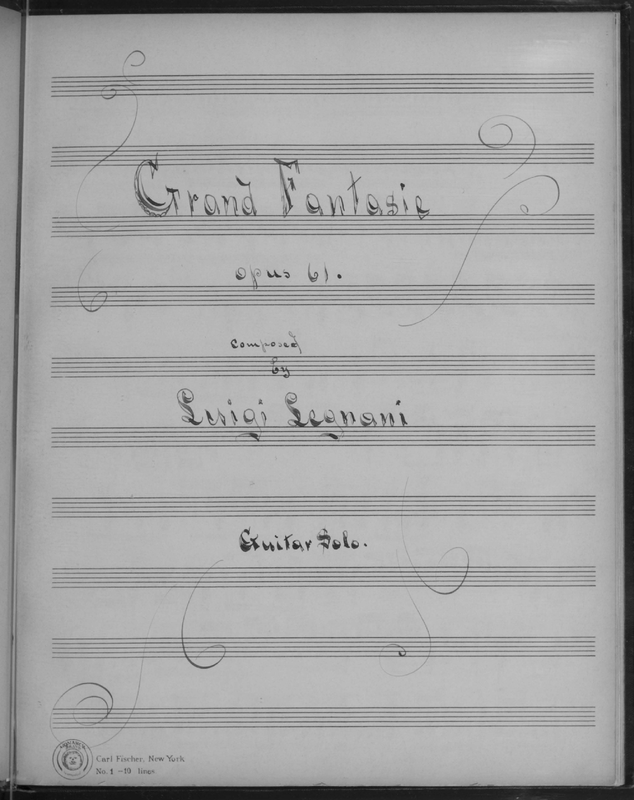 Grand Fantasie
opus 61.
composed
by
Luigi Legnani
Guitar Solo.
Carl Fischer, New York
No. 1 - 10 lines